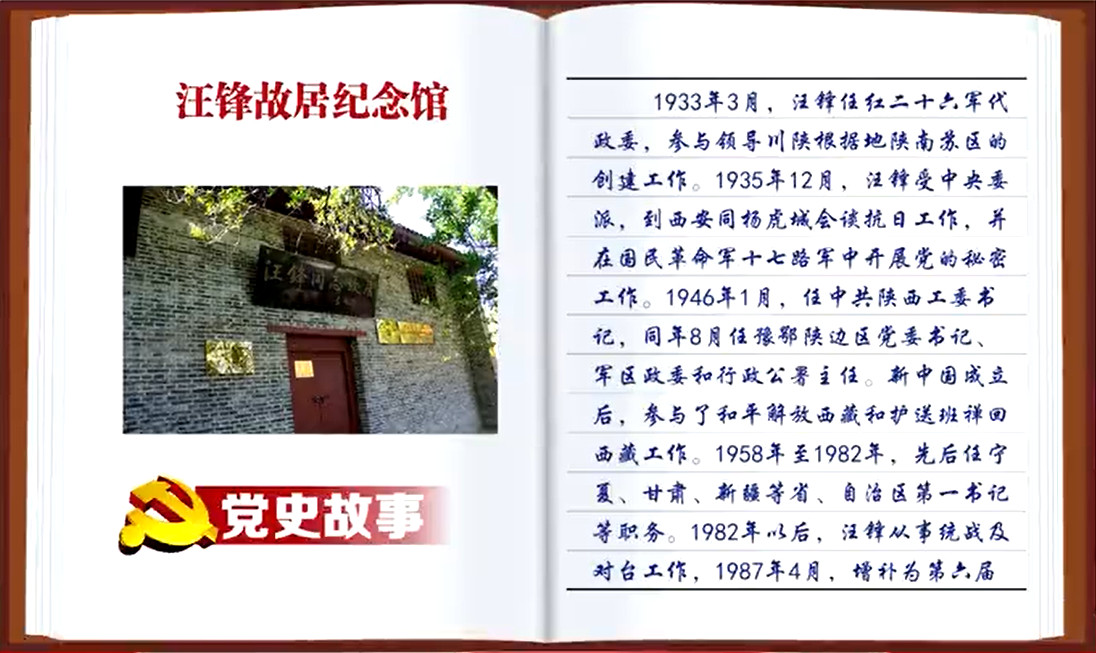 汪锋故居纪念馆
汪锋同志
党史故事
1933年3月，汪锋任红二十六军代
政委，参与领导川陕根据地陕南苏区的
创建工作。1935年12月，汪锋受中央委
派，到西安同杨虎城会谈抗日工作，并
在国民革命军十七路军中开展党的秘密
工作。1946年1月，任中共陕西工委书
记，同年8月任豫鄂陕边区党委书记、
军区政委和行政公署主任。新中国成立
后，参与了和平解放西藏和护送班禅回
西藏工作。1958年至1982年，先后任宁
夏、甘肃、新疆等省、自治区第一书记
等职务。1982年以后，汪锋从事统战及
对台工作，1987年4月，增补为第六届